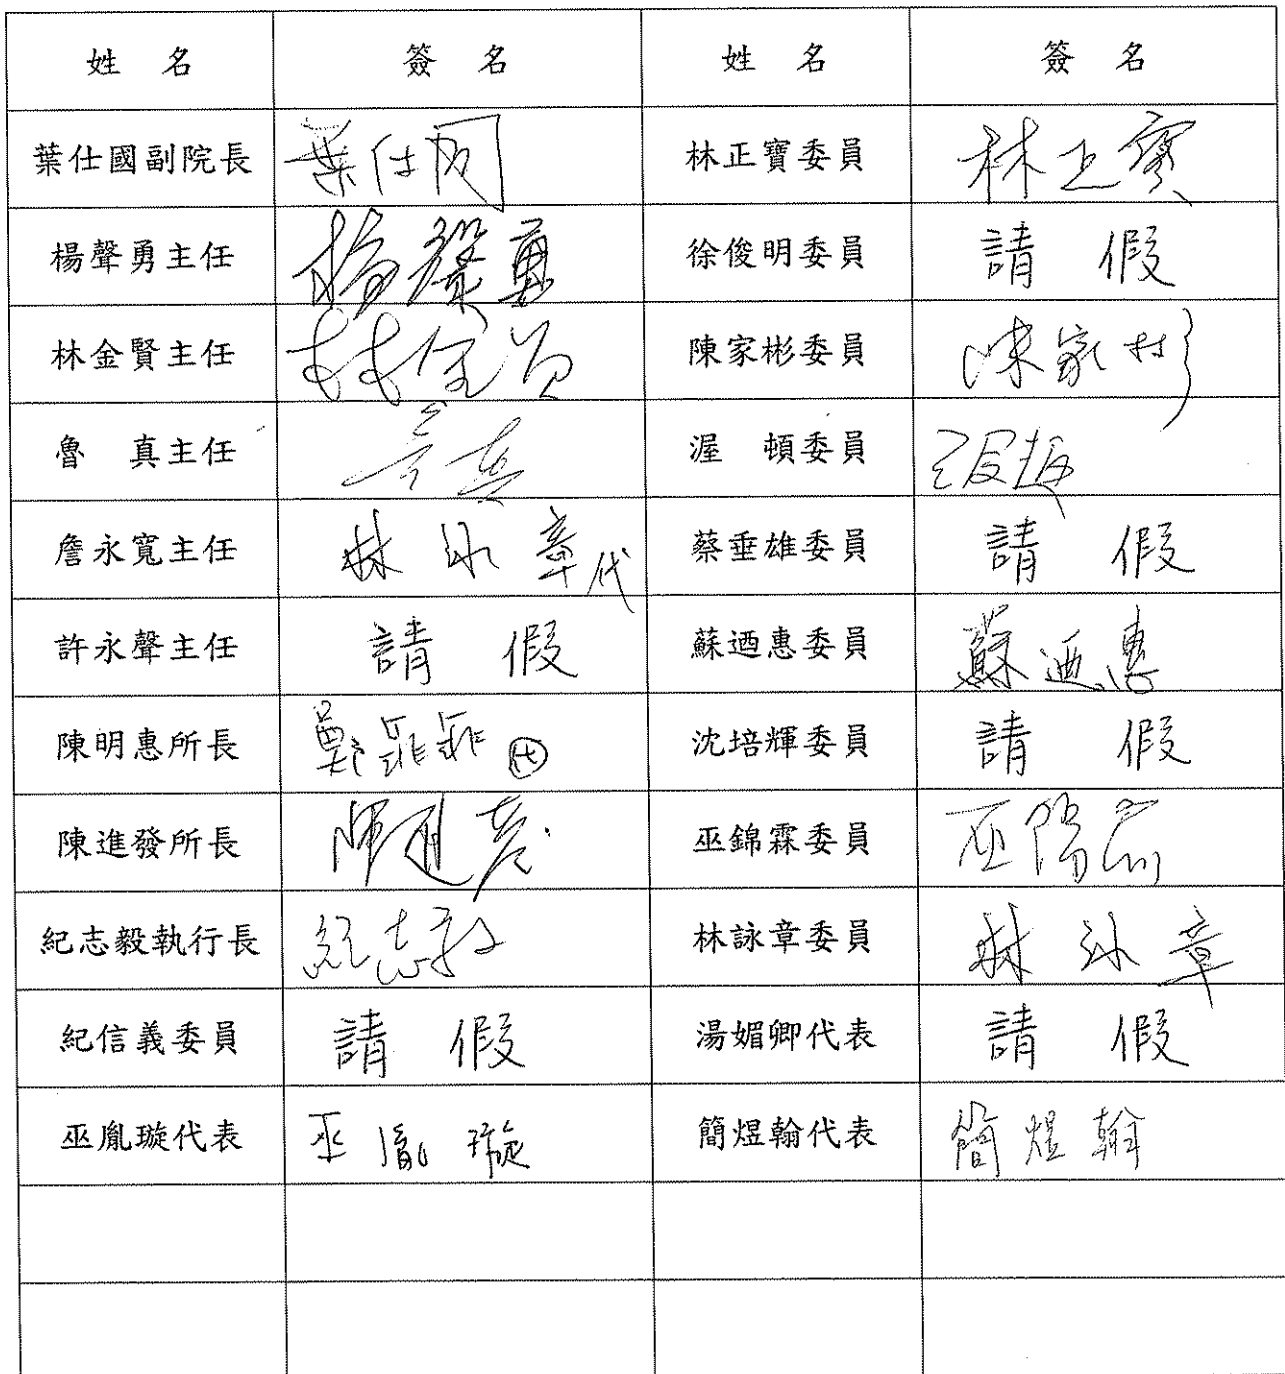 姓 名 簽 名 姓 名 簽 名
葉仕國副院長 葉仕國 林正寶委員 林正寶
楊聲勇主任 楊聲勇 徐俊明委員 請 假
林金賢主任 林金賢 陳家彬委員 陳家彬
魯 真主任 魯真 渥 頓委員 渥頓
詹永寬主任 林詠章代 蔡垂雄委員 請 假
許永聲主任 請 假 蘇迺惠委員 蘇迺惠
陳明惠所長 鄭菲菲 代 沈培輝委員 請 假
陳進發所長 陳進發 巫錦霖委員 巫錦霖
紀志毅執行長 紀志毅 林詠章委員 林詠章
紀信義委員 請 假 湯媚卿代表 請 假
巫胤璇代表 巫胤璇 簡煜翰代表 簡煜翰